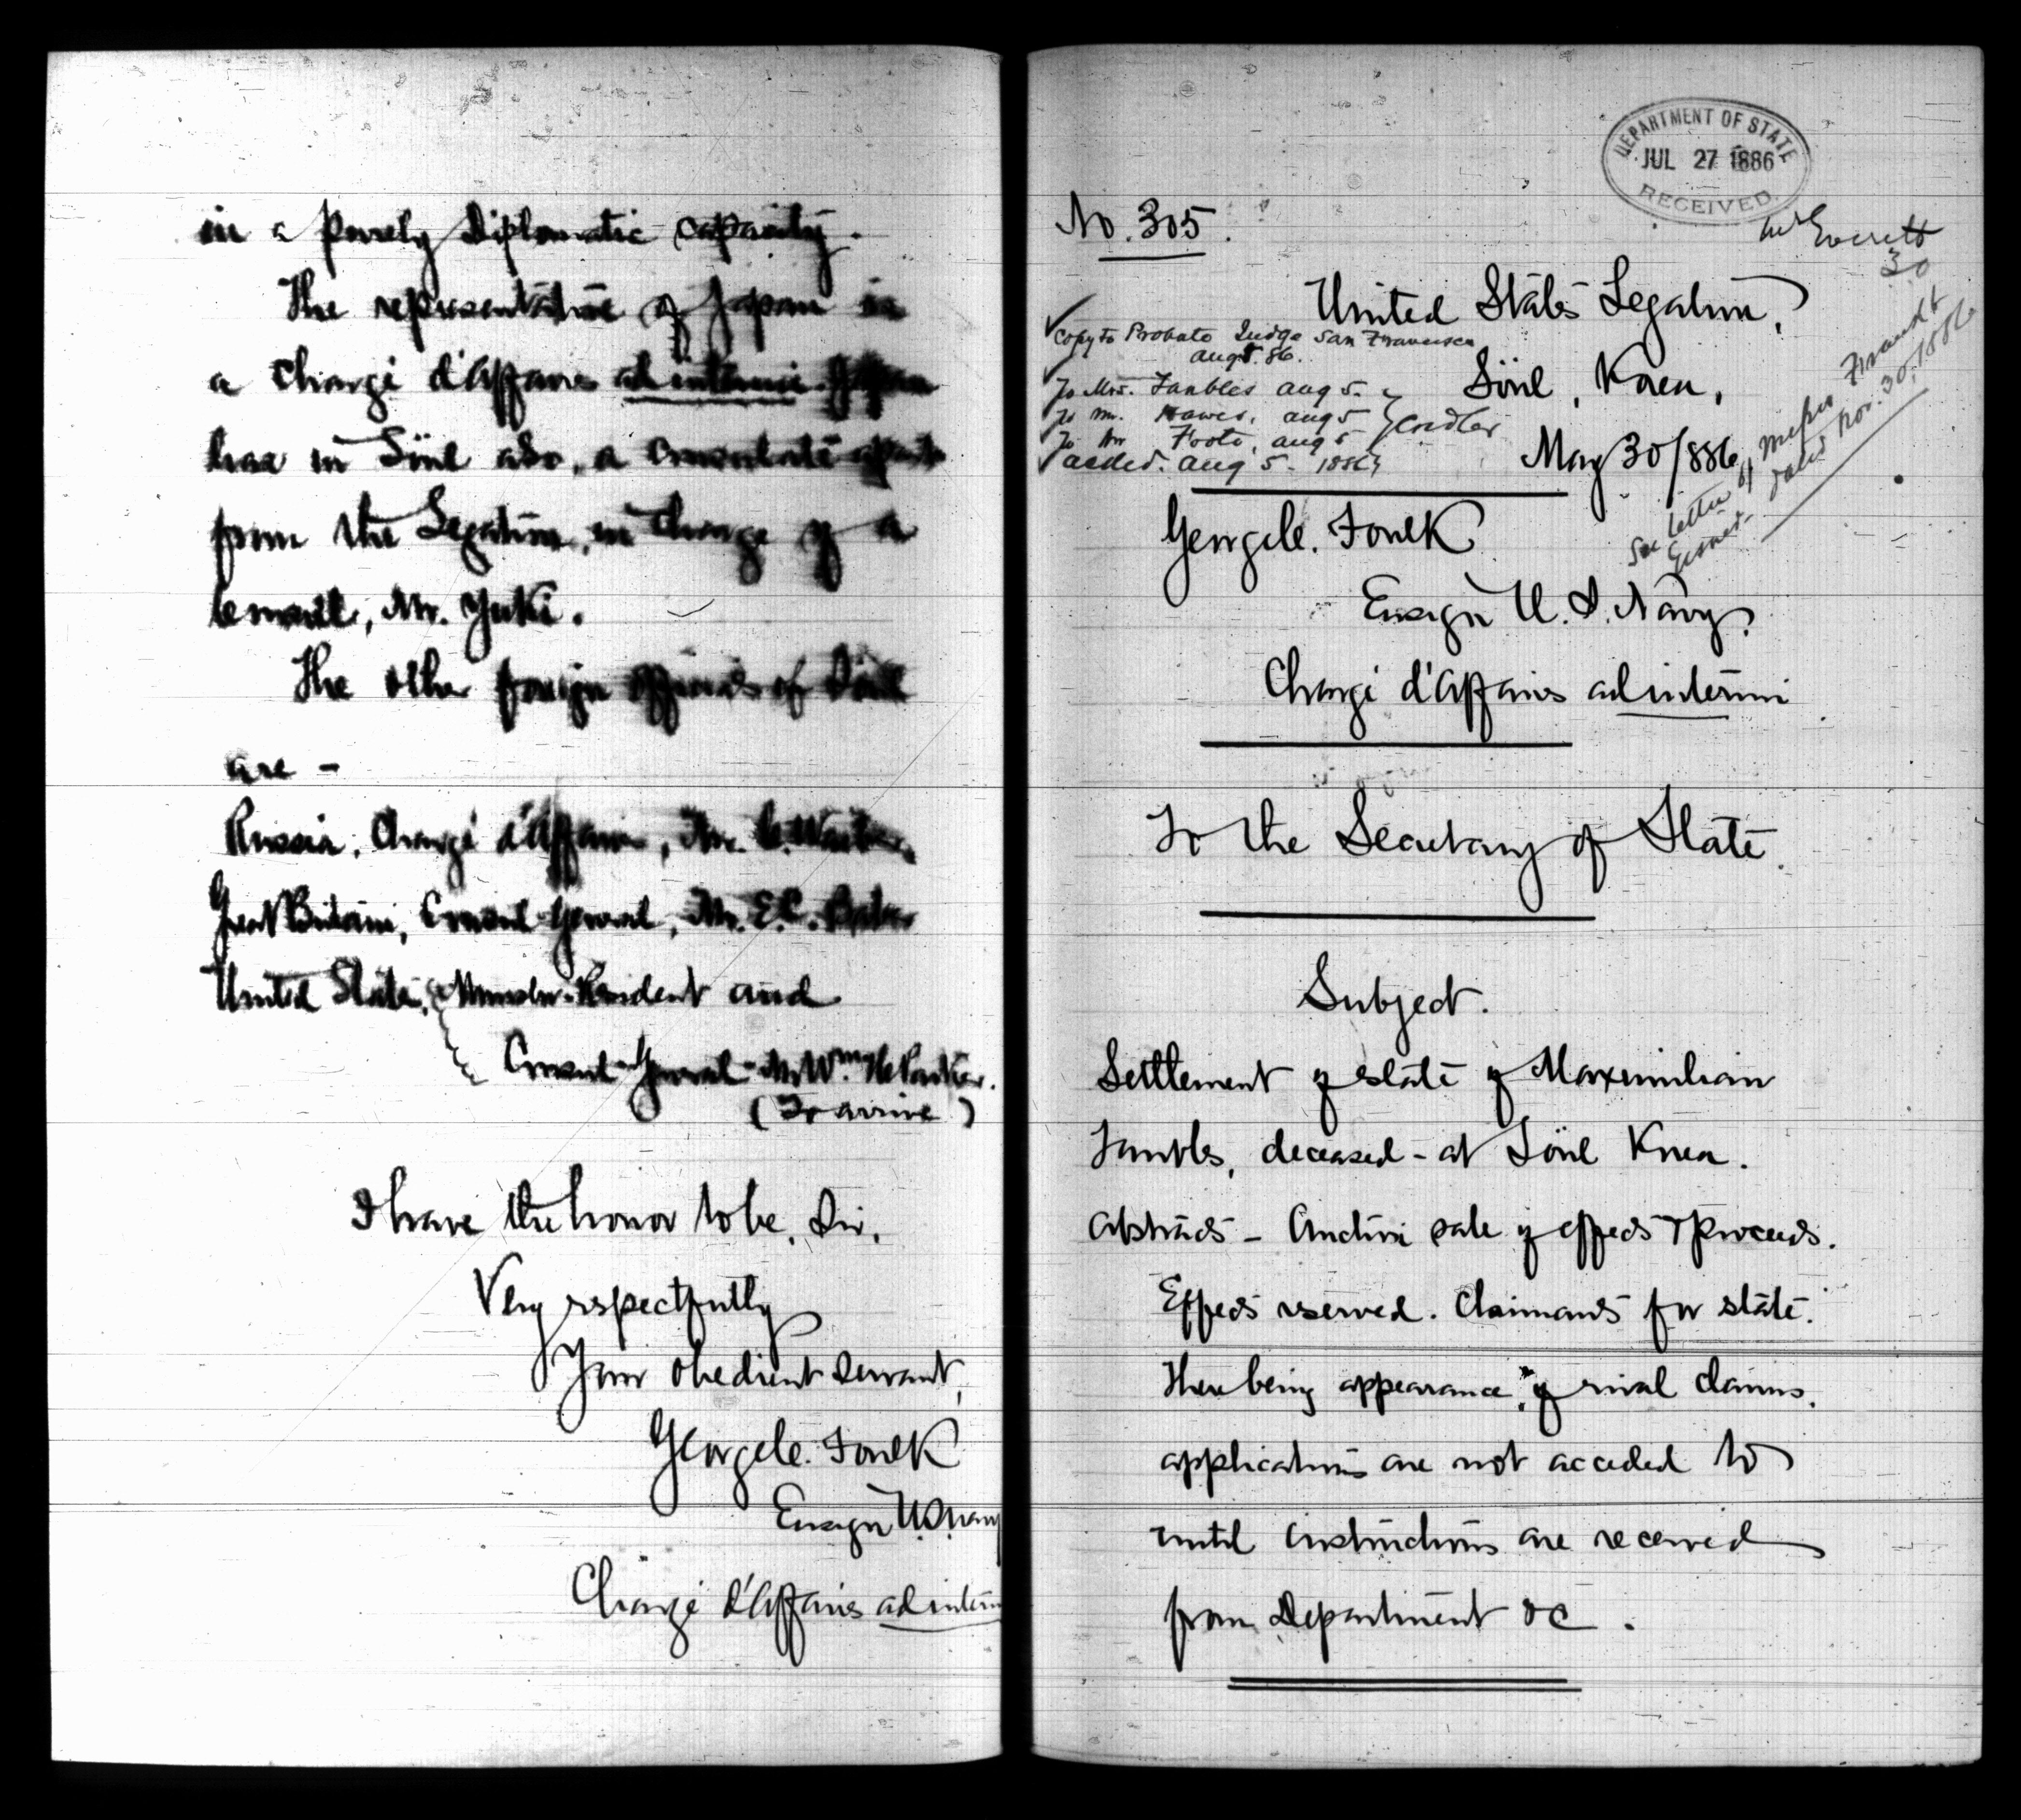 in a purely Diplomatic capacity.
The representative of Japan is
a Chargé d'Affaires ad interim. Japan
has in Söul also, a Consulate apart
from the Legation, in charge of a
Consul, Mr. Yuki.
The other foreign officials of Söul
are –
Russia, Chargé d'Affaires, Mr. C. Waeber,
Great Britain, Consul General, Mr. E. C. Baber
United States, Minister Resident and
Consul-General Mr Wm. H. Parker.
(To arrive)
I have the honor to be, Sir,
Very respectfully
Your obedient servant,
George C. Foulk
Ensign U.S. Navy
Chargé d'Affaires ad interim
DEPARTMENT OF STATE
JUL 27 1886
RECEIVED
No. 305.
Mr Everett
30
United States Legation,
Copy to Probate Judge San Francisco
Aug 5. 86.
Söul, Korea,
To Mrs. Taubles Aug 5.
To Mr. Hawes, Aug 5
To Mr Foote, Aug 5
acked. Aug 5. 1886
May 30/1886
See letter of Messrs
dated Nov. 30, 1886
George C. Foulk
Ensign U. S. Navy,
Chargé d'Affaires ad interim
To the Secretary of State.
Subject.
Settlement of estate of Maximilian
Taubles, deceased – at Söul Korea.
Abstracts – Auction sale of effects & proceeds.
Effects reserved. Claimants for estate.
There being appearance of rival claims,
applications are not acceded to
until instructions are received
from Department &c.